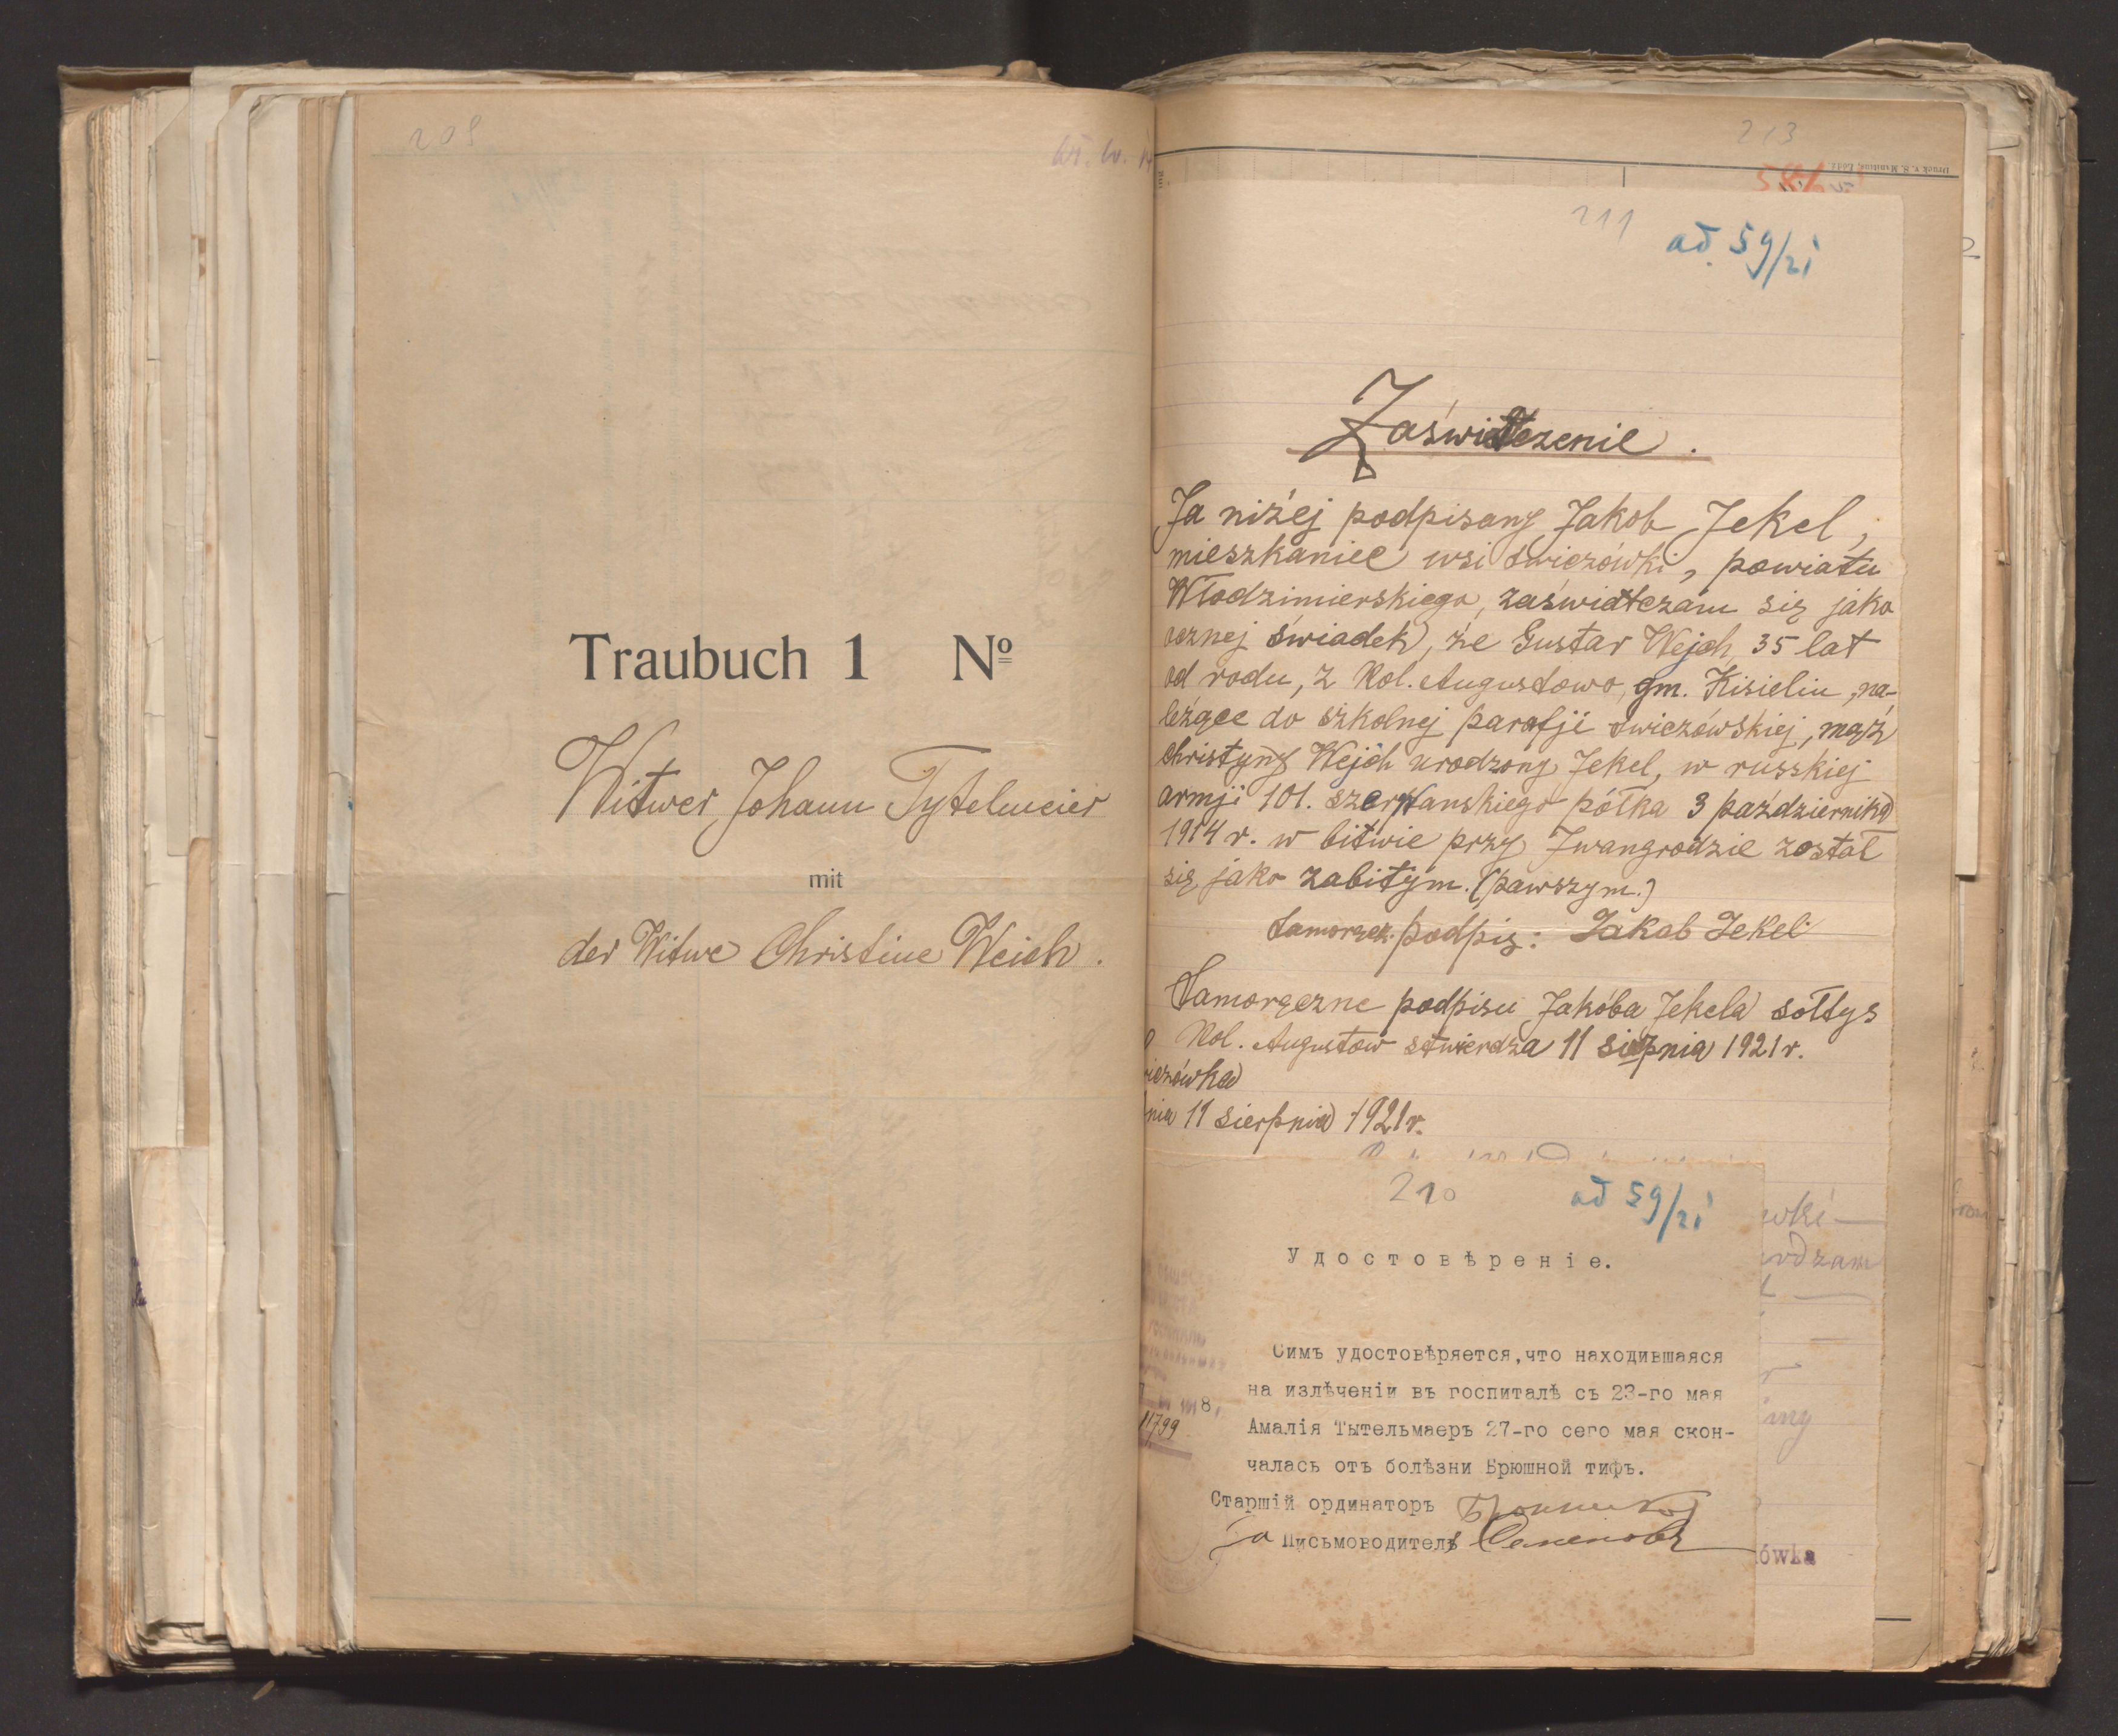 209
Traubuch 1 Nº
Witwer Johann Tytelmeier
mit
der Witwe Christine Weich.
213
Druck v. S. Manitius, Łódź.
211
ad. 59/21
Zaświatczenie.
Ja niżej podpisany Jakob Jekel,
mieszkaniec wsi Swiczówki, powiatu
Włodzimierskiego, zaświatczam się jako
ocznej świadek, że Gustav Wejch 35 lat
od rodu, z Kol. Augustowo, gm. Kisielin, na-
leżące do szkolnej parafji Swiczówskiej, mąż
Christyny Wejch urodzony Jekel, w russkiej
armji 101. półka 3 października
1914 r. w bitwie przy Iwangrodzie został
się jako zabitym. (pawszym.)
Samoręcz. podpis: Jakob Jekel
Samoręczne podpisu Jakóba Jekela sołtys
Kol. Augustow stwierdza 11 sierpnia 1921 r.
iczówka
nia 11 sierpnia 1921 r.
210
ad 59/21
Удостовѣреніе.
Симъ удостовѣряется,что находившаяся
на излѣченіи въ госпиталѣ съ 23-го мая
8
Амалія Тытельмаеръ 27-го сего мая скон-
11799
чалась отъ болѣзни Брюшной тифъ.
Старшій ординаторъ
За Письмоводитель Семеновъ
wki
rdzam
ówka